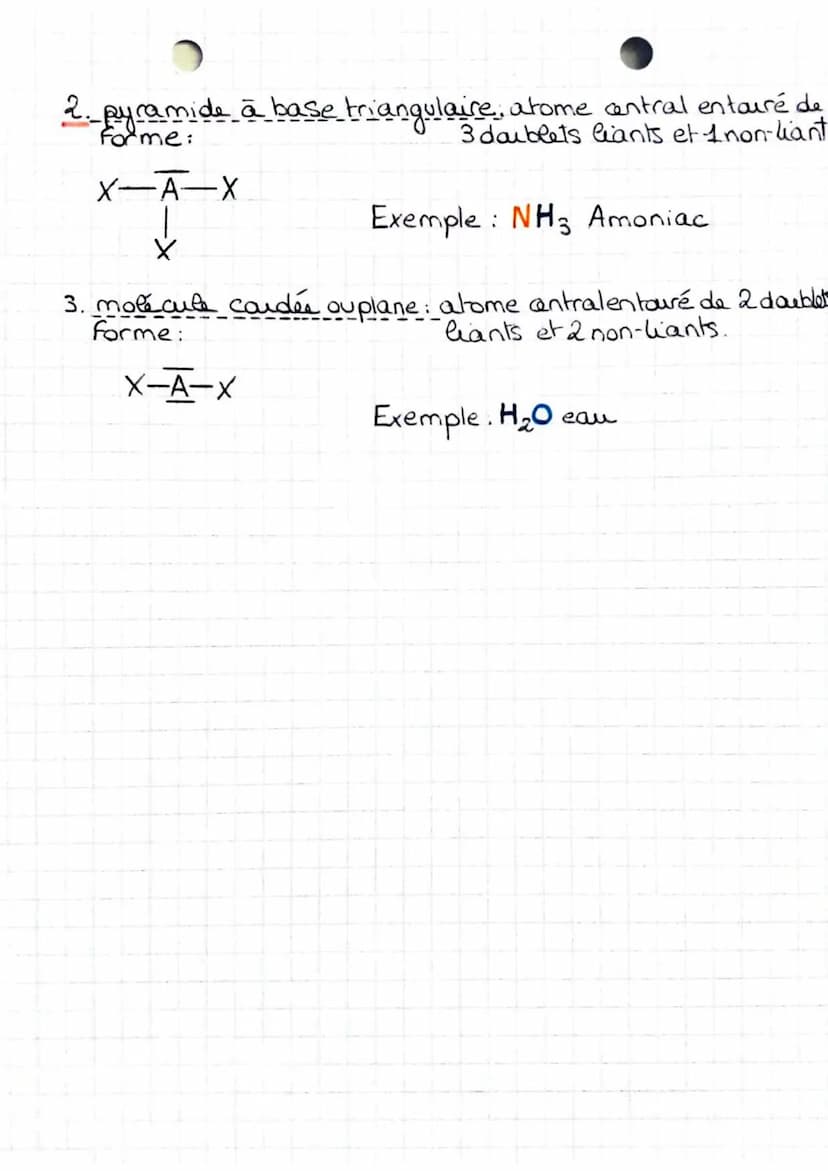 2. pyramide à base triangulaire: atome central entouré de
Forme: 3 doublets liants et 1 non-liant
X—A—X
|
X
Exemple : NH₃ Amoniac
3. molécule coudée ou plane: atome central entouré de 2 doublets
Forme: liants et 2 non-liants.
X—A—X
Exemple. H₂O eau